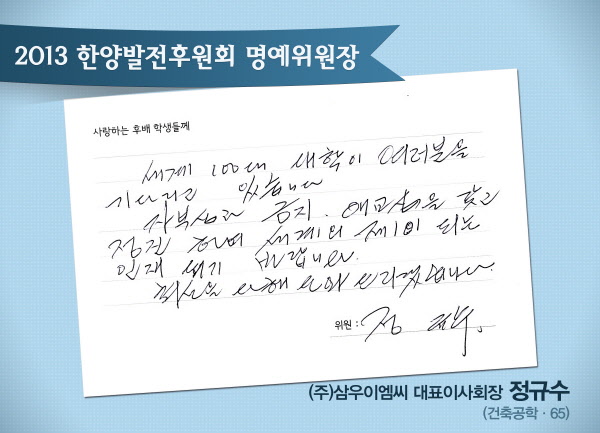 2013 한양발전후원회 명예위원장
사랑하는 후배 학생들께
세계 100대 대학이 여러분을
기다리고 있습니다
자부심과 긍지, 애교심을 갖고
정진 하여 세계의 제1이 되는
인재 되기 바랍니다.
최선을 다해 도와 드리겠습니다.
위원 : 정규수.
(주)삼우이엠씨 대표이사회장 정규수
(건축공학 · 65)